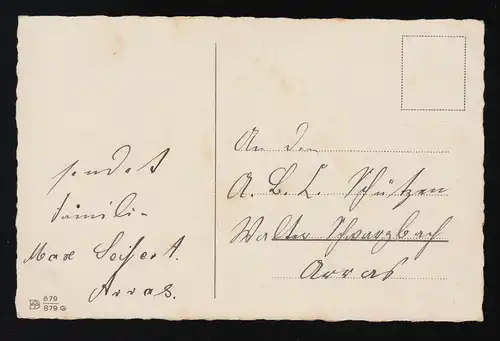 sendet
Familie
Max Seifert.
Arras.
679
879 G
An den
A. B. C. Schützen
Walter Schwarzbach
Arras